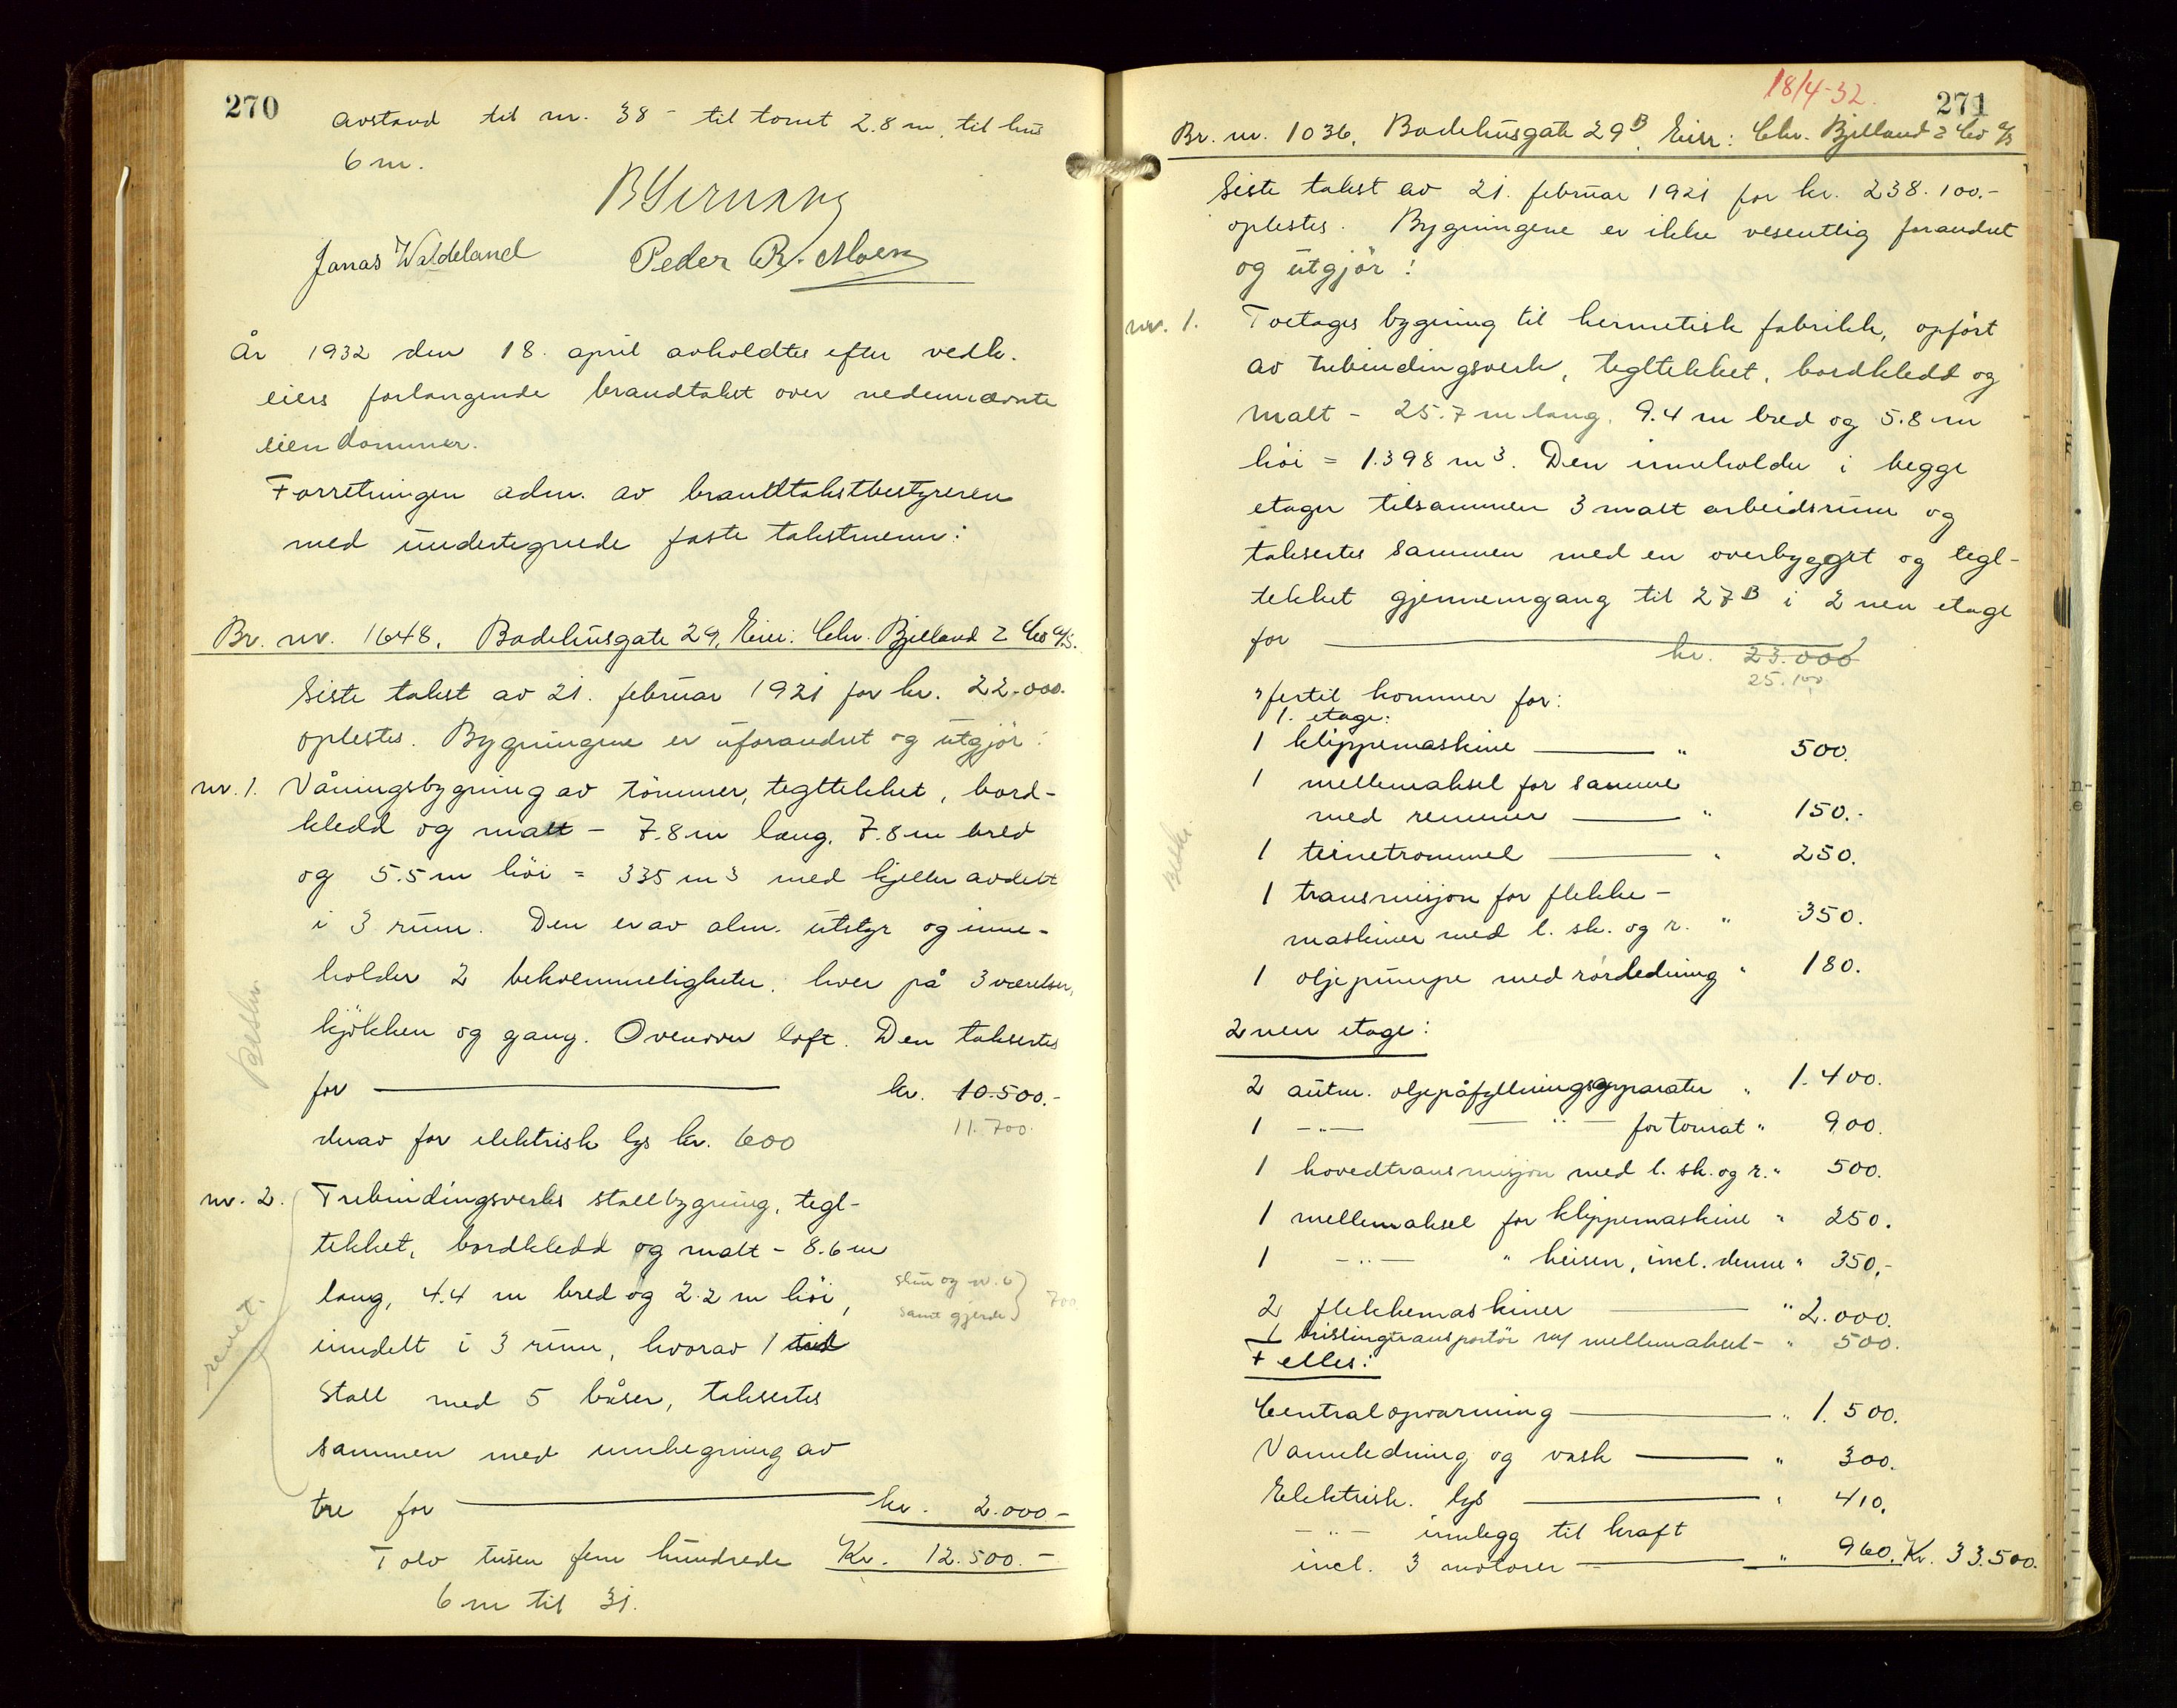 270
avstand til nr. 38 - til tomt 2.8 m, til hus
6 m.
Jonas Waldeland Peder R. Moen
År 1932 den 18. april avholdtes efter vedk.
eiers forlangende brandtakst over nedennævnte
eiendommer.
Forretningen adm. av brandtakstbestyreren
med undertegnede faste takstmenn:
Br. nr. 1648, Badehusgate 29, Eier: Chr. Bjelland & Co A/S.
Siste takst av 21. februar 1921 for kr. 22.000.
oplestes. Bygningene er uforandret og utgjör:
nr. 1. Våningsbygning av tömmer, tegltekket, bord-
kledd og malt - 7.8 m lang, 7.8 m bred
og 5.5 m höi = 335 m3 med kjeller avdelt
i 3 rum. Den er av alm. utstyr og inne-
holder 2 bekvemmeligheter, hver på 3 værelser,
kjökken og gang. Ovenover loft. Den taksertes
for kr. 10.500.-
11.700.
derav for elektrisk lys kr. 600
nr. 2. Trebindingsverks stallbygning, tegl-
tekket, bordkledd og malt - 8.6 m
lang, 4.4 m bred og 2.2 m höi,
skur og nr. 6
samt gjerde } 700
inndelt i 3 rum, hvorav 1 til
stall med 5 båser, taksertes
sammen med innhegning av
tre for kr. 2.000-
revet.
Tolv tusen fem hundrede Kr. 12.500.-
6 m til 31.
18/4-32.
271
Br. nr. 1036, Badehusgate 29 B, Eier: Chr. Bjelland & Co A/S
Siste takst av 21. februar 1921 for kr. 238.100.-
oplestes. Bygningene er ikke vesentlig forandret
og utgjör:
nr. 1. Toetages bygning til hermetisk fabrikk, opfört
av trebindingsverk, tegltekket, bordkledd og
malt - 25.7 m lang, 9.4 m bred og 5.8 m
höi = 1.398 m3. Den inneholder i begge
etager tilsammen 3 malt arbeidsrum og
taksertes sammen med en overbygget og tegl-
tekket gjennemgang til 27 B i 2nen etage
for kr. 23.000
25.100
hertil kommer for:
1. etage:
1 klippemaskine " 500.
1 mellemaksel for samme
med remmer " 150.-
1 teinetrommel " 250.
1 transmisjon for flekke-
maskiner med l. sk. og r. " 350.
1 oljepumpe med rörledning " 180.
2nen etage:
2 autm. oljepåfyllningsapparater " 1.400.
1 -"- -"- for tomat " 900.
1 hovedtransmisjon med l. sk. og r. " 500.
1 mellemaksel for klippemaskine " 250.
1 -"- " heisen, incl. denne " 350.-
2 flekkemaskiner " 2.000.
1 brislingtransportör m/ mellemaksel - " 500.
Felles:
Centralopvarming " 1.500.
Vannledning og vask " 300.
Elektrisk lys " 410.
-"- innlegg til kraft
incl. 3 motorer " 960. Kr. 33.500.